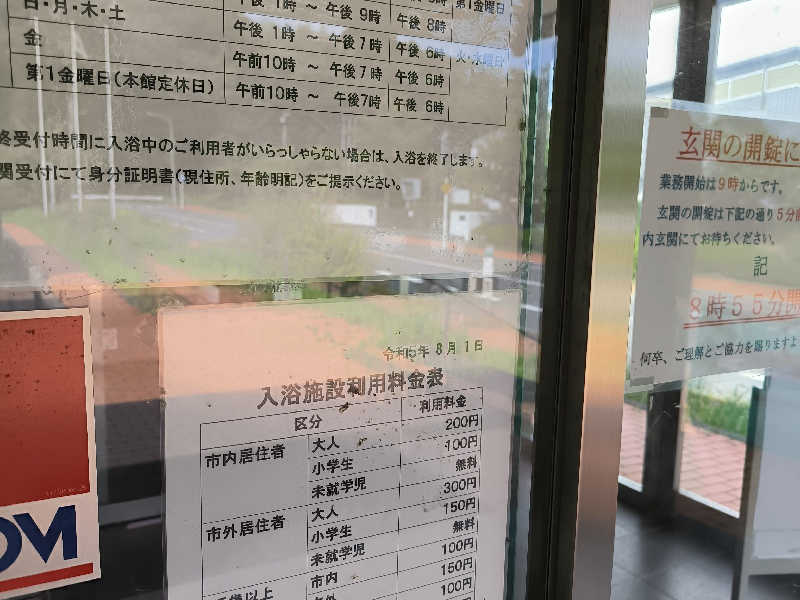 日・月・木・土 午後1時 ～ 午後9時 午後8時 第1金曜日
金 午後1時 ～ 午後7時 午後6時 火・水曜日
午前10時 ～ 午後7時 午後6時
第1金曜日(本館定休日) 午前10時 ～ 午後7時 午後6時
終受付時間に入浴中のご利用者がいらっしゃらない場合は、入浴を終了します。
関受付にて身分証明書(現住所、年齢明記)をご提示ください。
令和5年8月1日
入浴施設利用料金表
区分 利用料金
市内居住者 大人 200円
小学生 100円
未就学児 無料
市外居住者 大人 300円
小学生 150円
未就学児 無料
以上 市内 100円
150円
100円
OM
玄関の開錠に
業務開始は9時からです。
玄関の開錠は下記の通り5分前
内玄関にてお待ちください。
記
8時55分開
何卒、ご理解とご協力を賜りますよ